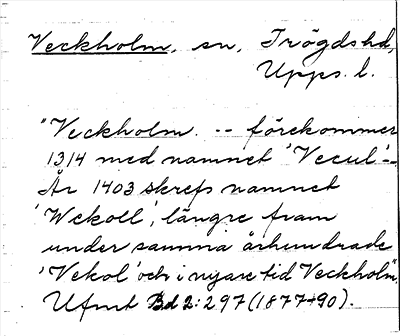 Veckholm, sn, Trögds hd,
Upps. l.
"Veckholm. -- förekommer
1314 med namnet 'Vecul' --
År 1403 skrefs namnet
'Wekoll', längre fram
under samma århundrade
'Vekol' och i nyare tid Veckholm".
Ufmt Bd 2: 297 (1877+90).